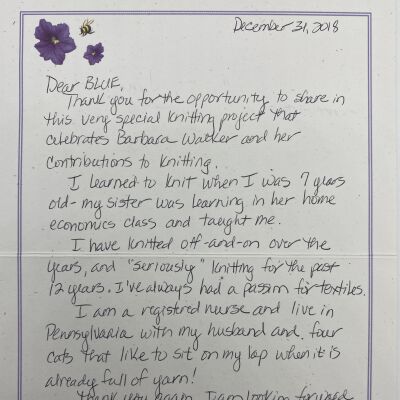 December 31, 2018
Dear BLUE,
Thank you for the opportunity to share in
this very special knitting project that
celebrates Barbara Walker and her
contributions to knitting.
I learned to knit when I was 7 years
old - my sister was learning in her home
economics class and taught me.
I have knitted off-and-on over the
years, and "seriously" knitting for the past
12 years. I've always had a passion for textiles.
I am a registered nurse and live in
Pennsylvania with my husband and four
cats that like to sit on my lap when it is
already full of yarn!
Thank you again. I am looking forward